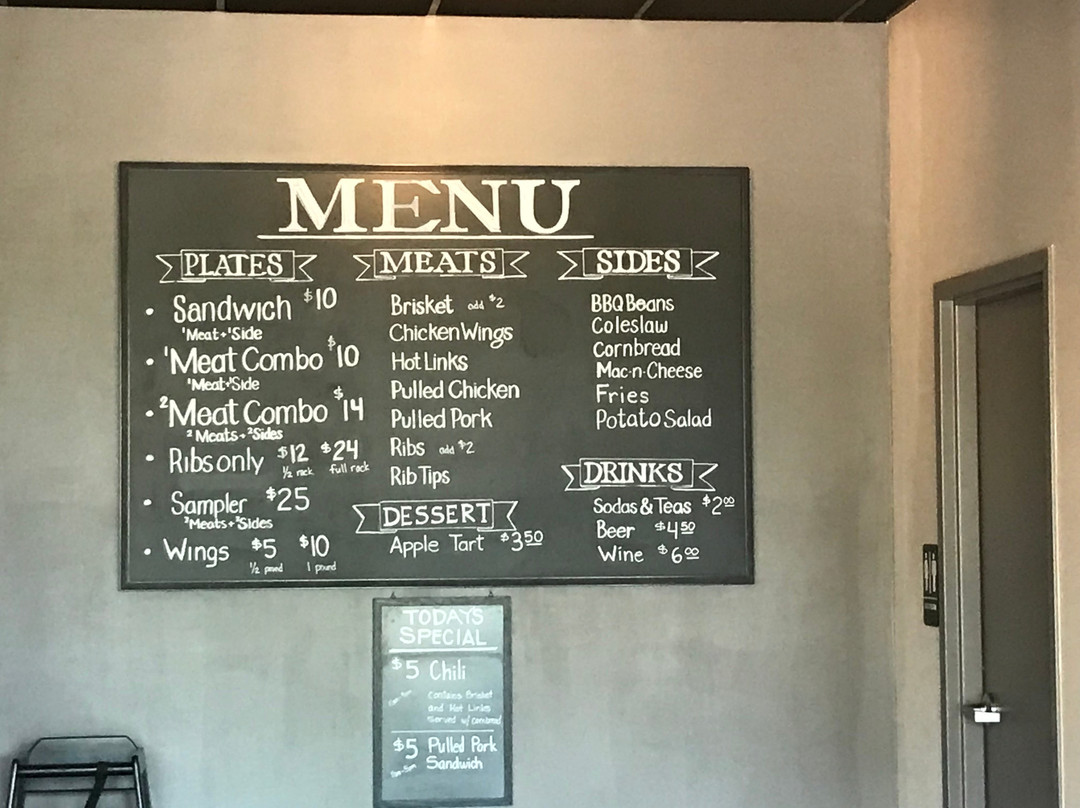 MENU
PLATES
• Sandwich $10
1Meat+1Side
• 1Meat Combo $10
1Meat+1Side
• 2Meat Combo $14
2 Meats+2Sides
• Ribs only $12 $24
1/2 rack full rack
• Sampler $25
Meats+3Sides
• Wings $5 $10
1/2 pound 1 pound
MEATS
Brisket add $2
Chicken Wings
Hot Links
Pulled Chicken
Pulled Pork
Ribs add $2
Rib Tips
DESSERT
Apple Tart $3.50
SIDES
BBQ Beans
Coleslaw
Cornbread
Mac·n·Cheese
Fries
Potato Salad
DRINKS
Sodas & Teas $2.00
Beer $4.50
Wine $6.00
TODAYS
SPECIAL
$5 Chili
Contains Brisket
and Hot Links
Served w/ cornbread
$5 Pulled Pork
Sandwich